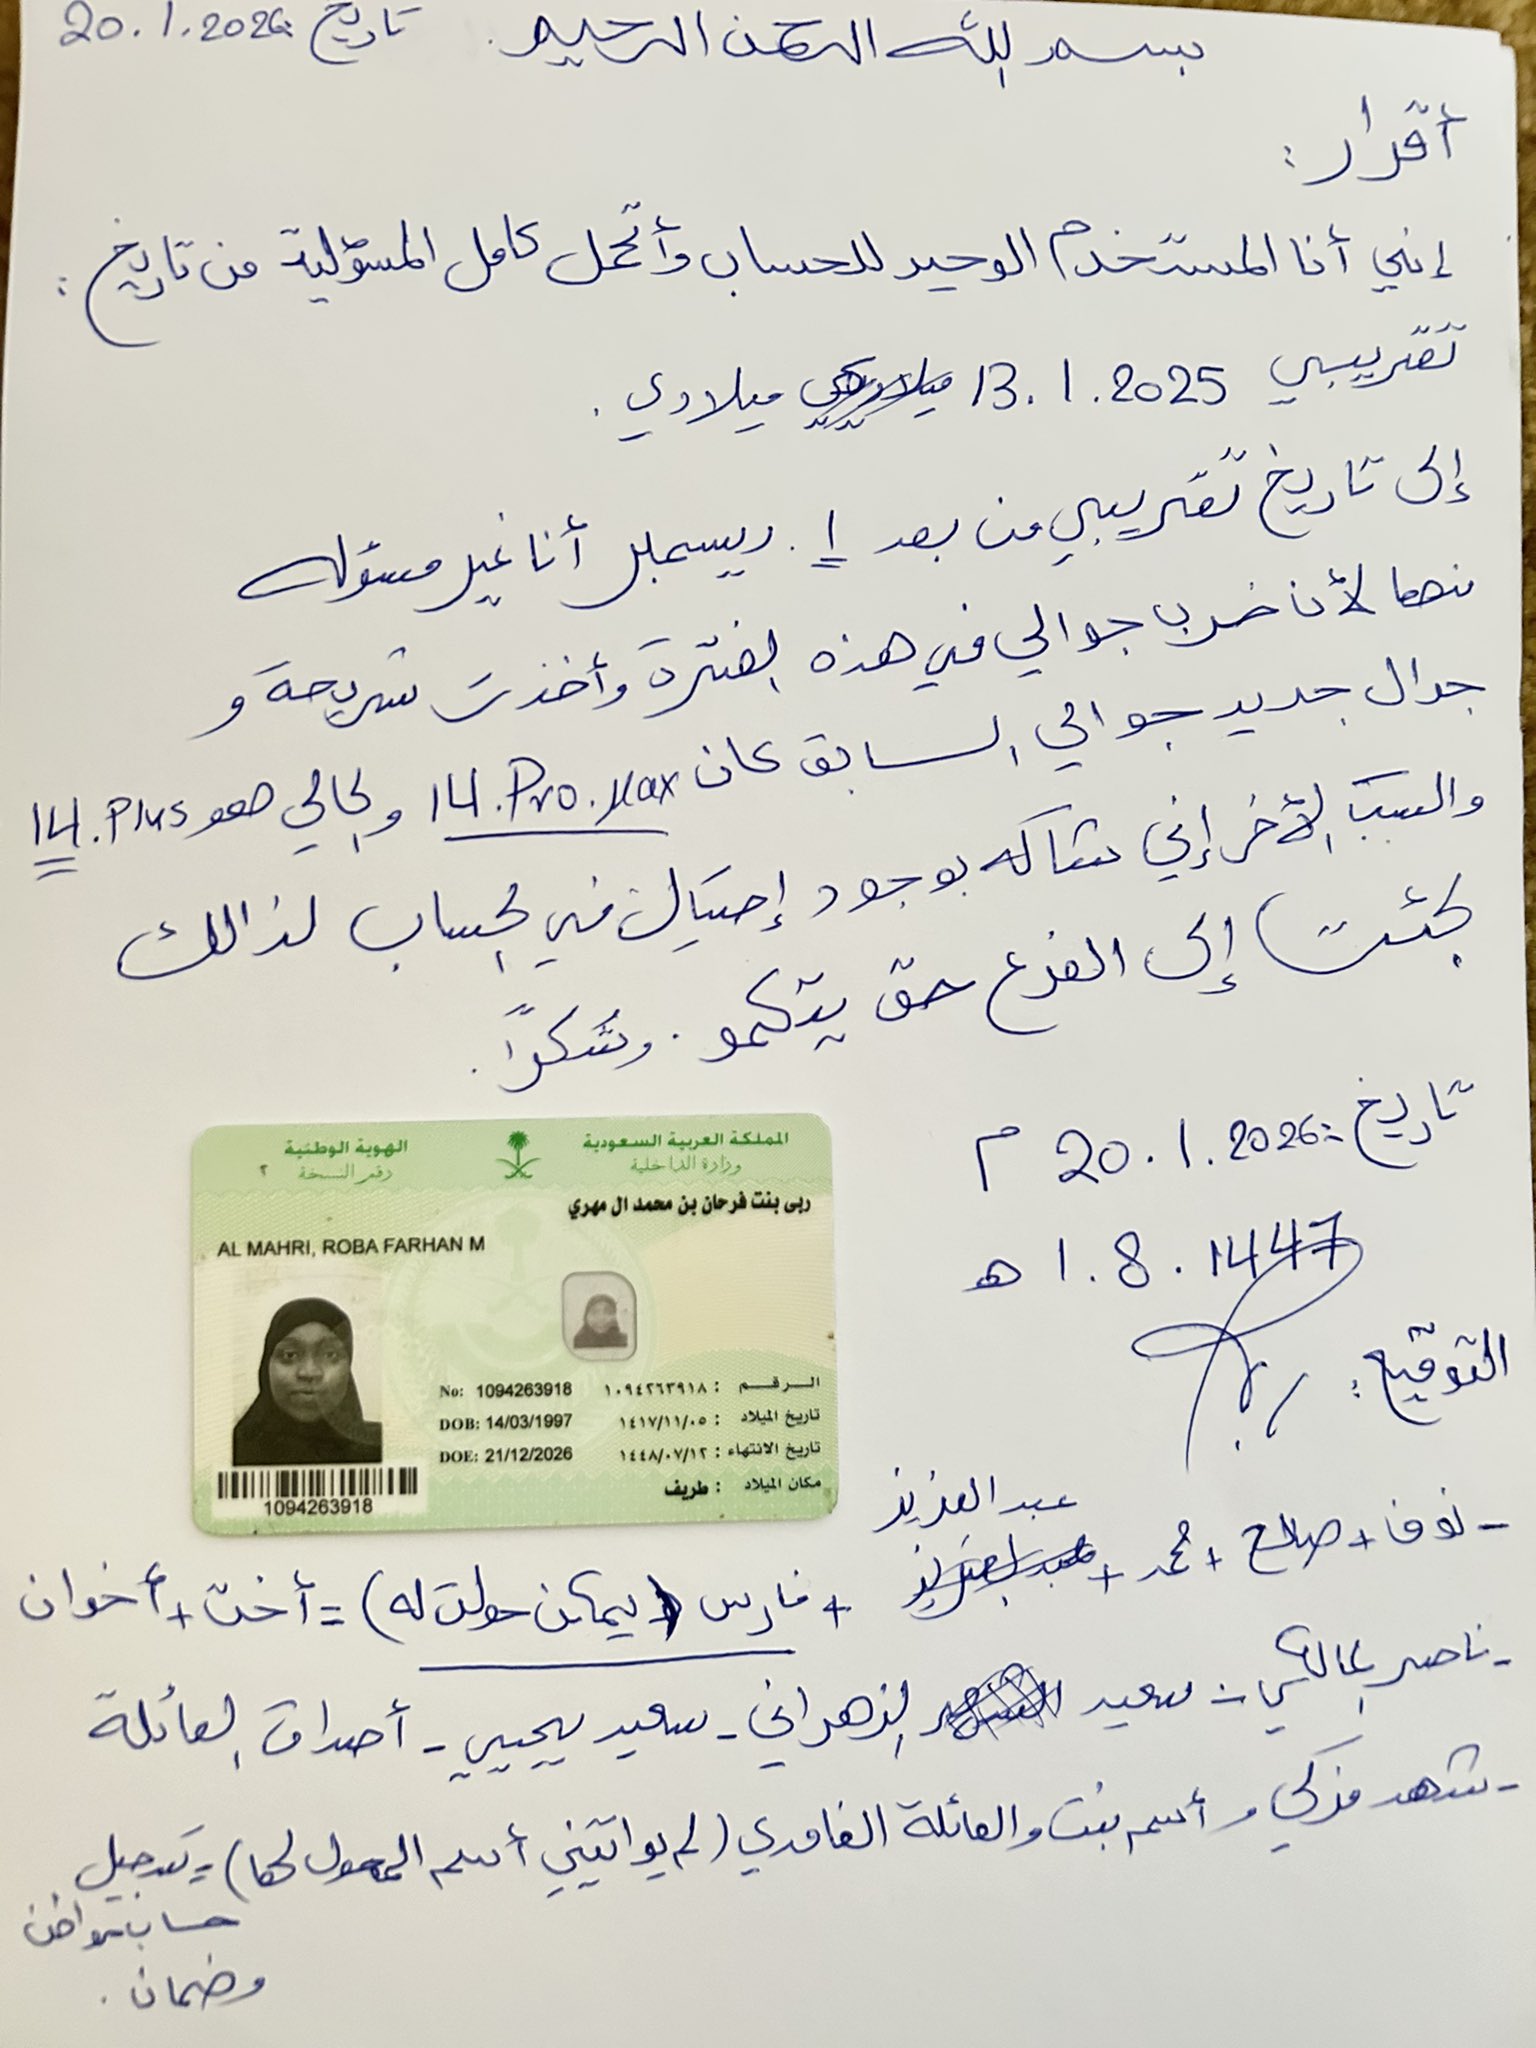 بسم الله الرحمن الرحيم. تاريخ: 20.1.2026
أقرار:
إنني أنا المستخدم الوحيد للحساب وأتحمل كامل المسؤلية من تاريخ:
تقريبي 13.1.2025 ميلادي.
إلى تاريخ تقريبي من بعد 1. ديسمبر أنا غير مسؤله
منها لأن خرب جوالي في هذه الفترة وأخذت شريحة و
جوال جديد جوالي السابق كان 14.Pro.Max والحالي هو 14.Plus
والسبب الأخر إني شاكه بوجود إحتيال في الحساب لذالك
جئت إلى الفرع حق يتكمو. وشكراً.
تاريخ: 20.1.2026 م
1.8.1447 ه
التوقيع:
المملكة العربية السعودية
وزارة الداخلية
الهوية الوطنية
رقم النسخة ٢
ربى بنت فرحان بن محمد ال مهري
AL MAHRI, ROBA FARHAN M
No: 1094263918 الرقم : ١٠٩٤٢٦٣٩١٨
DOB: 14/03/1997 تاريخ الميلاد : ١٤١٧/١١/٠٥
DOE: 21/12/2026 تاريخ الانتهاء : ١٤٤٨/٠٧/١٢
مكان الميلاد : طريف
1094263918
- نوف + صالح + محمد + عبد العزيز + فارس (يمكن حولت له) = أخت + أخوان
- ناصر المالكي - سعيد الزهراني - سعيد يحيى - أصداق العائلة
- شهد مزكي و أسم بنت والعائلة الغامدي (لم يواتيني أسم المحول لها) = تسجيل
حساب مواطن
وضمان.